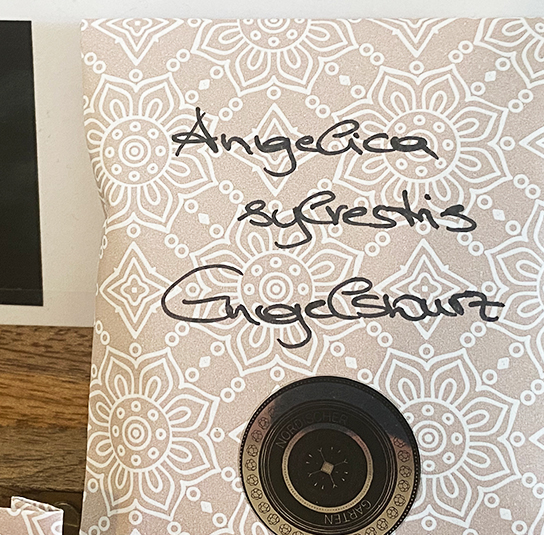 Angelica
sylvestris
Engelswurz
NORDISCHER
GARTEN